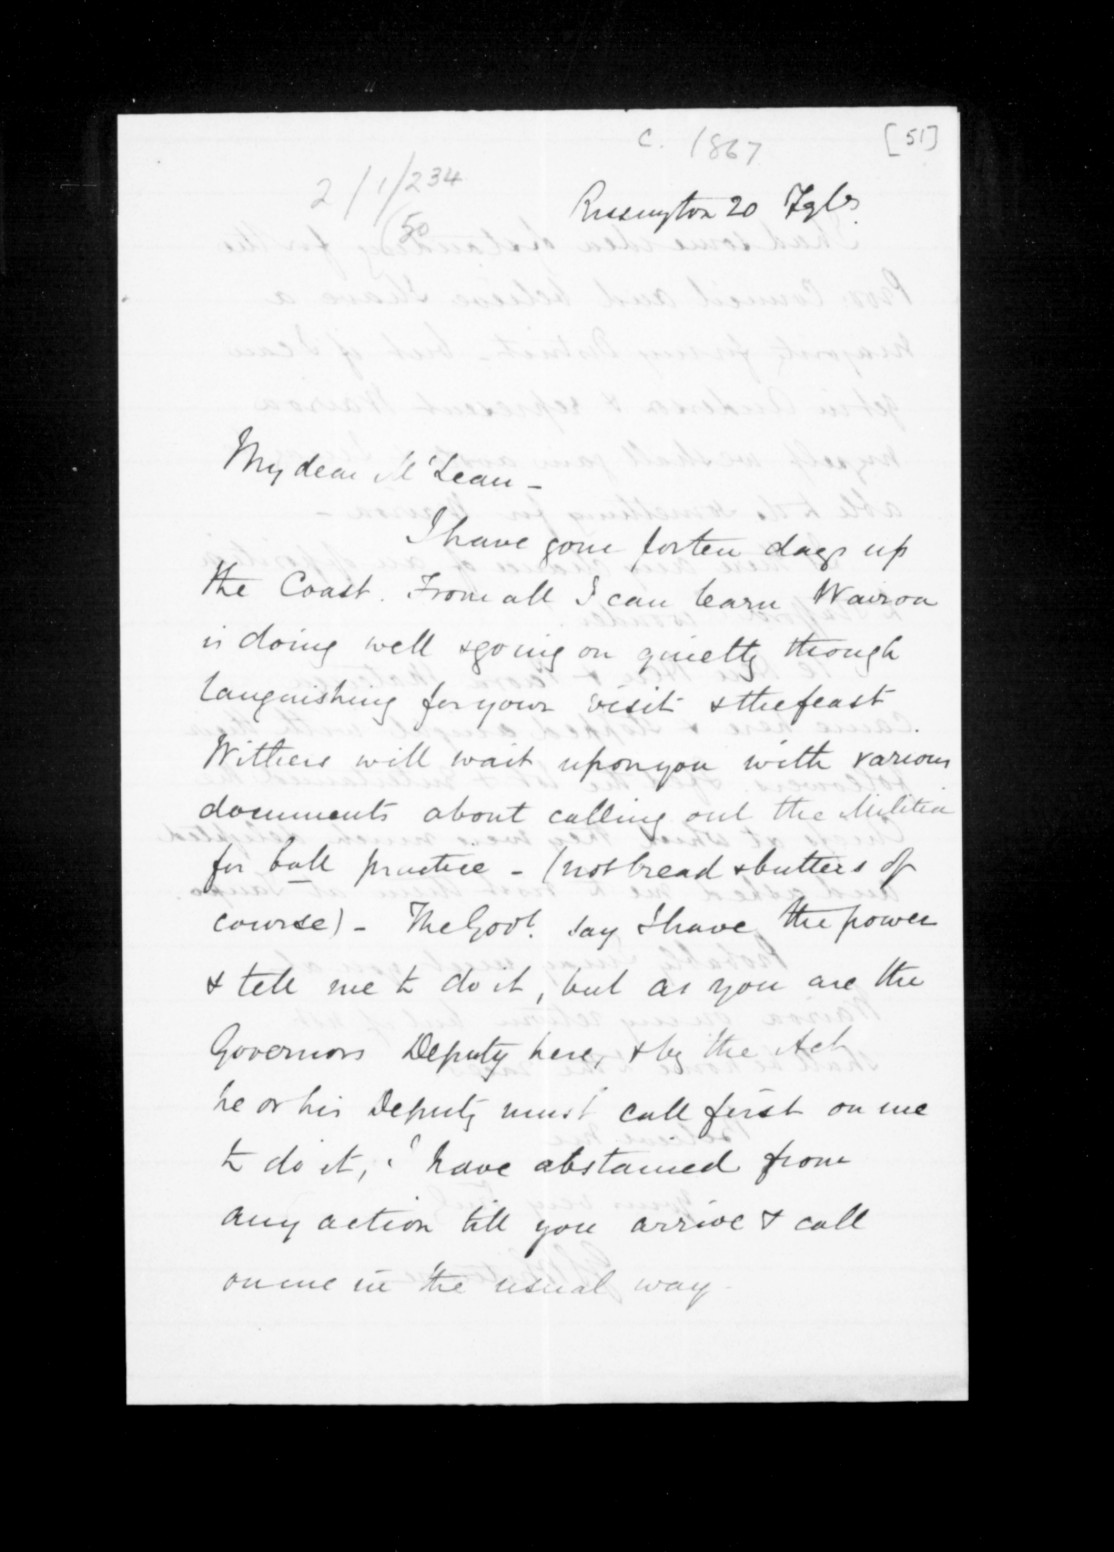 c. 1867
[51]
2/1/234
50
Rissington 20
My dear McLean -
I have gone for ten days up
the Coast. From all I can learn Wairoa
is doing well & going on quietly though
languishing for your visit & the feast.
Withers will wait upon you with various
documents about calling out the Militia
for ball practice - (not bread & butters of
course) - The Govt. say I have the power
& tell me to do it, but as you are the
Governors Deputy here, & by the Act
he or his Deputy must call first on me
to do it, I have abstained from
any action till you arrive & call
on me in the usual way.